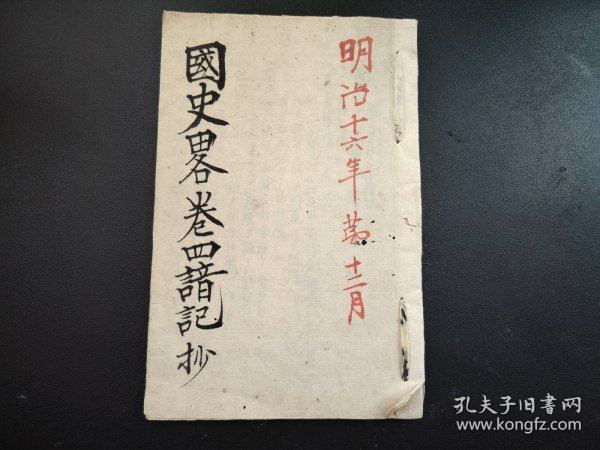 明治十六年第十二月
國史畧卷四諳記抄
孔夫子旧书网
www.kongfz.com